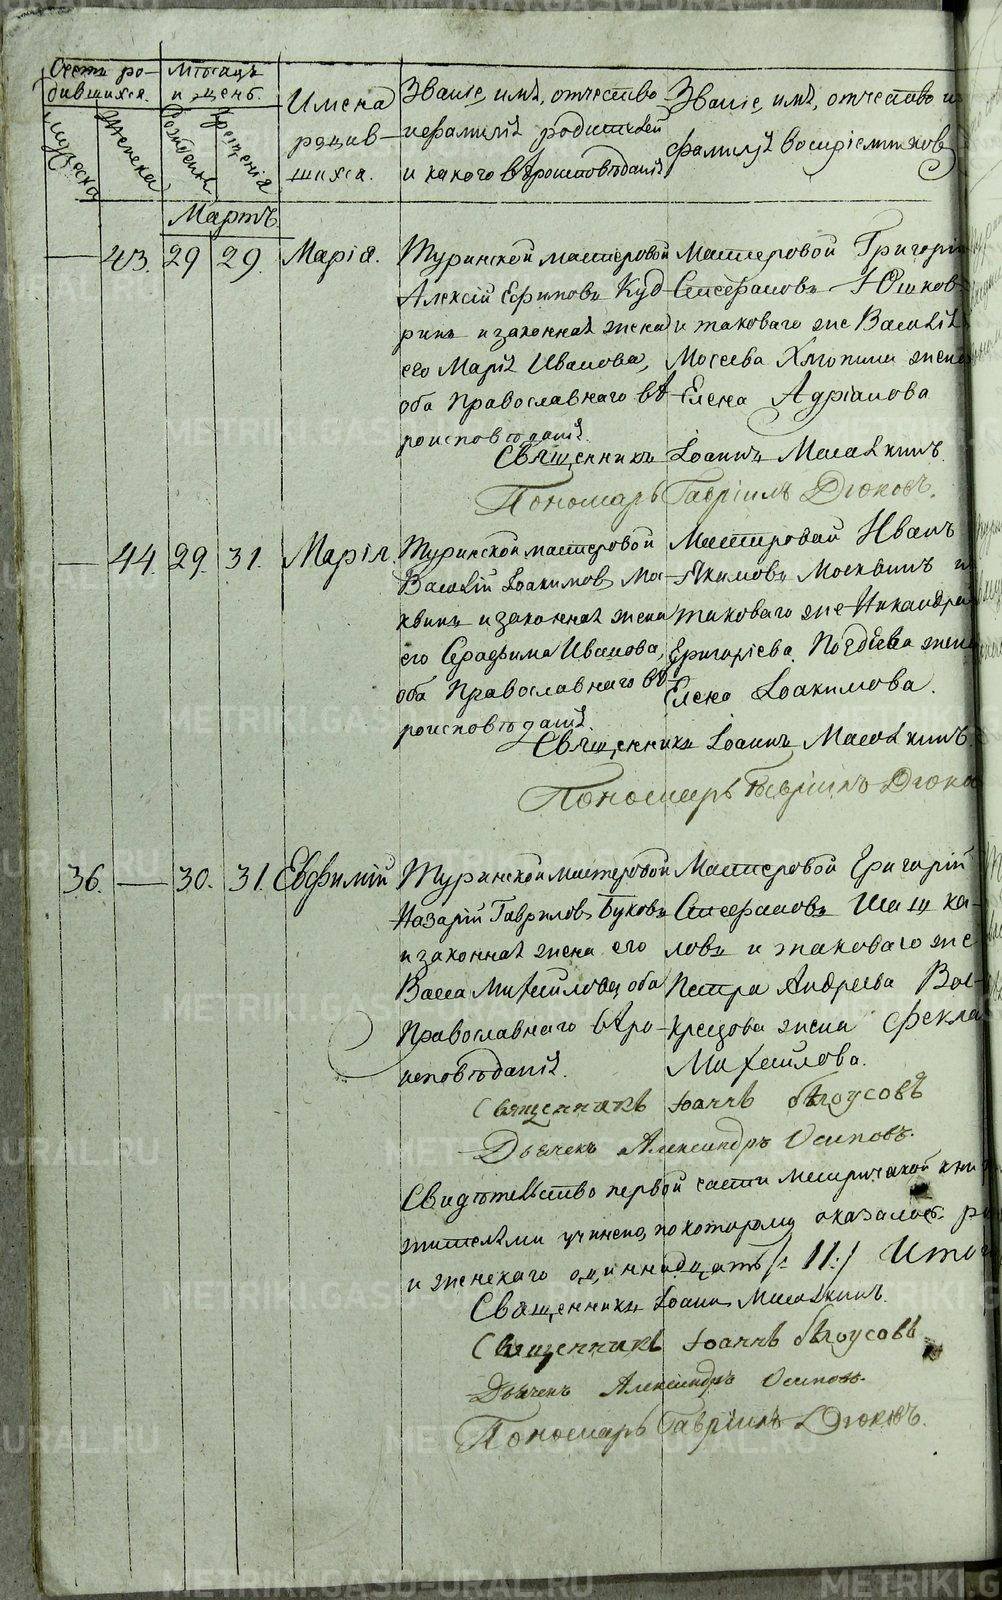 Счетъ ро-
дившихся.
Мужеска
Женска
Мѣсяцъ
и день.
Рожденія
Крещенія
Имена
родив-
шихся.
Званіе, имя, отчество
и фамилія родителей
и какого вѣроисповѣданія
Званіе, имя, отчество и
фамилія воспріемниковъ
Мартъ
— 43. 29 29. Марія.
Туринской мастеровой
Алексій Ефимовъ Куд
ринъ и законная жена
его Марія Иванова,
оба Православнаго вѣ
роисповѣданія.
Мастеровой Григорій
Стефановъ Юшков
и таковаго же Василія
Мосеева Хмопина жена
Елена Адріанова
Священникъ Іоаннъ Масалкинъ.
Пономарь Гавріилъ Дюковъ.
— 44. 29. 31. Марія.
Туринской мастеровой
Василій Іоакимовъ Мос-
квинъ и законная жена
его Серафима Иванова,
оба Православнаго вѣ-
роисповѣданія.
Мастеровой Иванъ
Акимовъ Москвинъ и
таковаго же Никандра
Григоріева Поздѣева жена
Елена Іоакимова.
Священникъ Іоаннъ Масалкинъ.
Пономарь Гавріилъ Дюко
36. — 30. 31. Евфимій
Туринской мастеровой
Назарій Гавриловъ Буковъ
и законная жена его
Васса Михайлова, оба
Православнаго вѣро-
исповѣданія.
Мастеровой Григорій
Стефановъ Шашка-
ловъ и таковаго же
Петра Андреева Вос-
крецова жена Фекла
Михайлова.
Священникъ Іоаннъ Бѣлоусовъ
Дьячекъ Александръ Осиповъ.
Свидѣтельство первой части метрической кни
жителями учинено, по которому оказалось ро
и женскаго одиннадцать /: 11:/ Итог
Священникъ Іоаннъ Масалкинъ.
Священникъ Іоаннъ Бѣлоусовъ
Дьячекъ Александръ Осиповъ.
Пономарь Гавріилъ Дюковъ.
METRIKI.GASO-URAL.RU